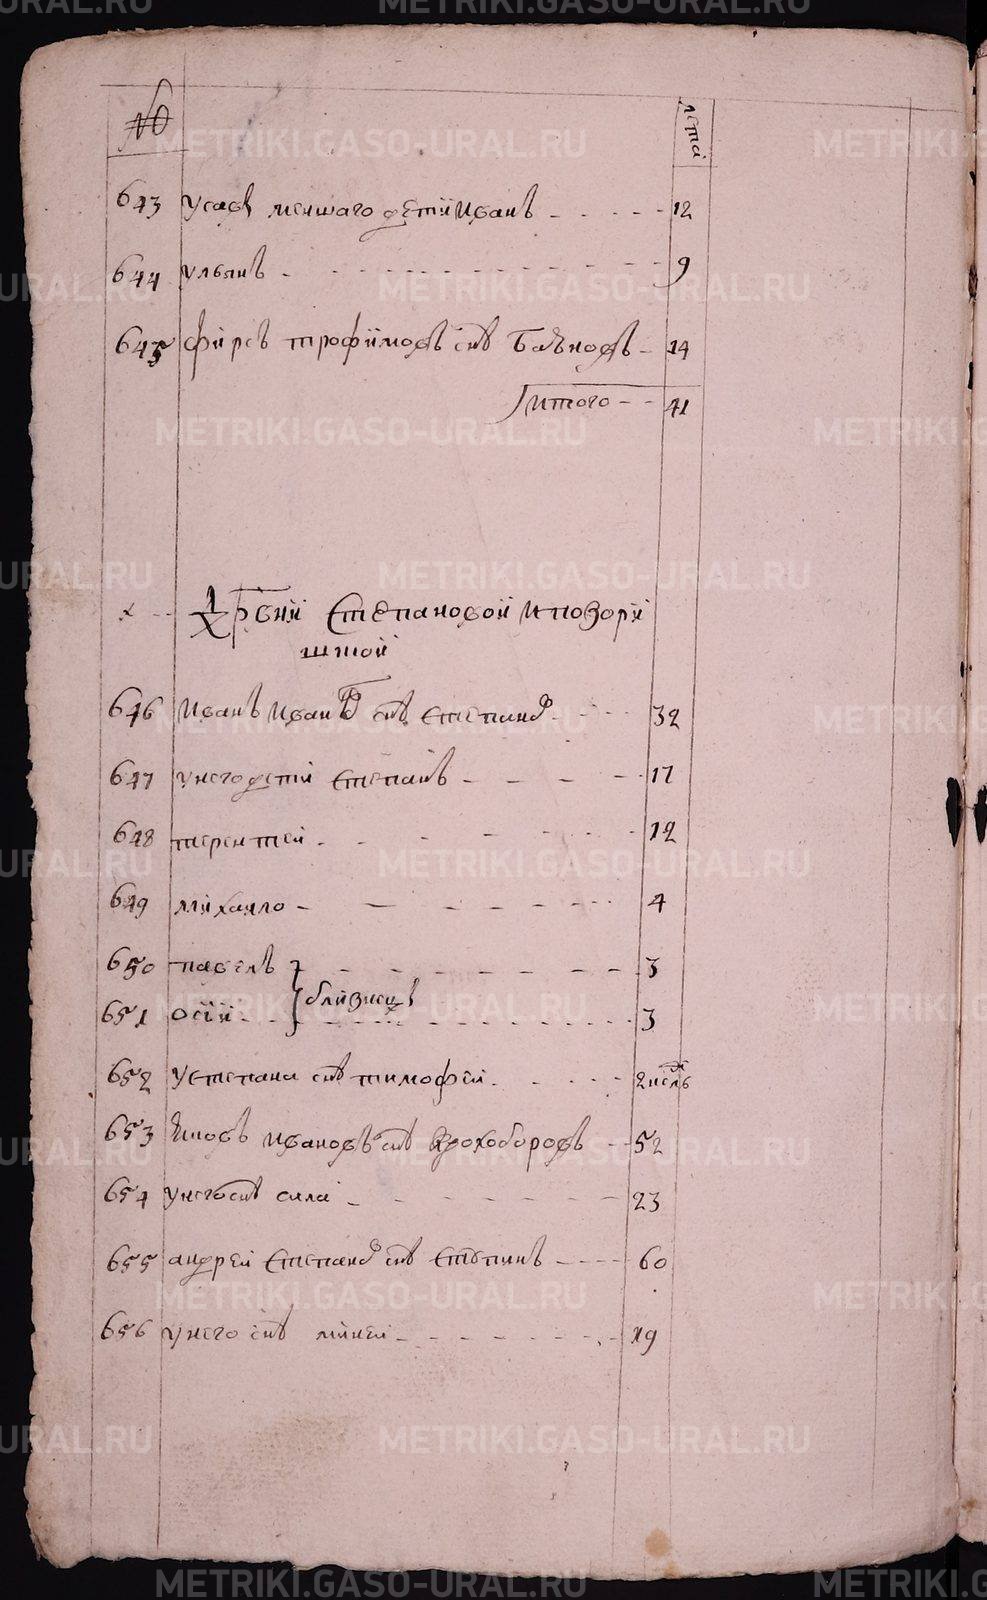 № лета
643 У савы меншаго дети Иванъ - - - - - 12
644 ульянъ - - - - - - - - - 9
645 фирсъ трофимовъ снъ - 14
Итого - - 41
х - - Дрвни Степановой и позори
шной
646 Иванъ Ивановъ снъ Степановъ - - - - 32
647 у него дети Степанъ - - - - - 17
648 терентей - - - - - - 12
649 михаило - - - - - - - 4
650 павелъ - - - - - - - 3
близнецы
651 осии - - - - - - - - - - 3
652 у степана снъ тимофей - - - - - 2 недль
653 Яковъ Ивановъ снъ Кособородовъ - - 52
654 у него снъ сила - - - - - - - 23
655 андрей Степановъ снъ Степинъ - - - - 60
656 у него снъ миней - - - - - - - 19
METRIKI.GASO-URAL.RU